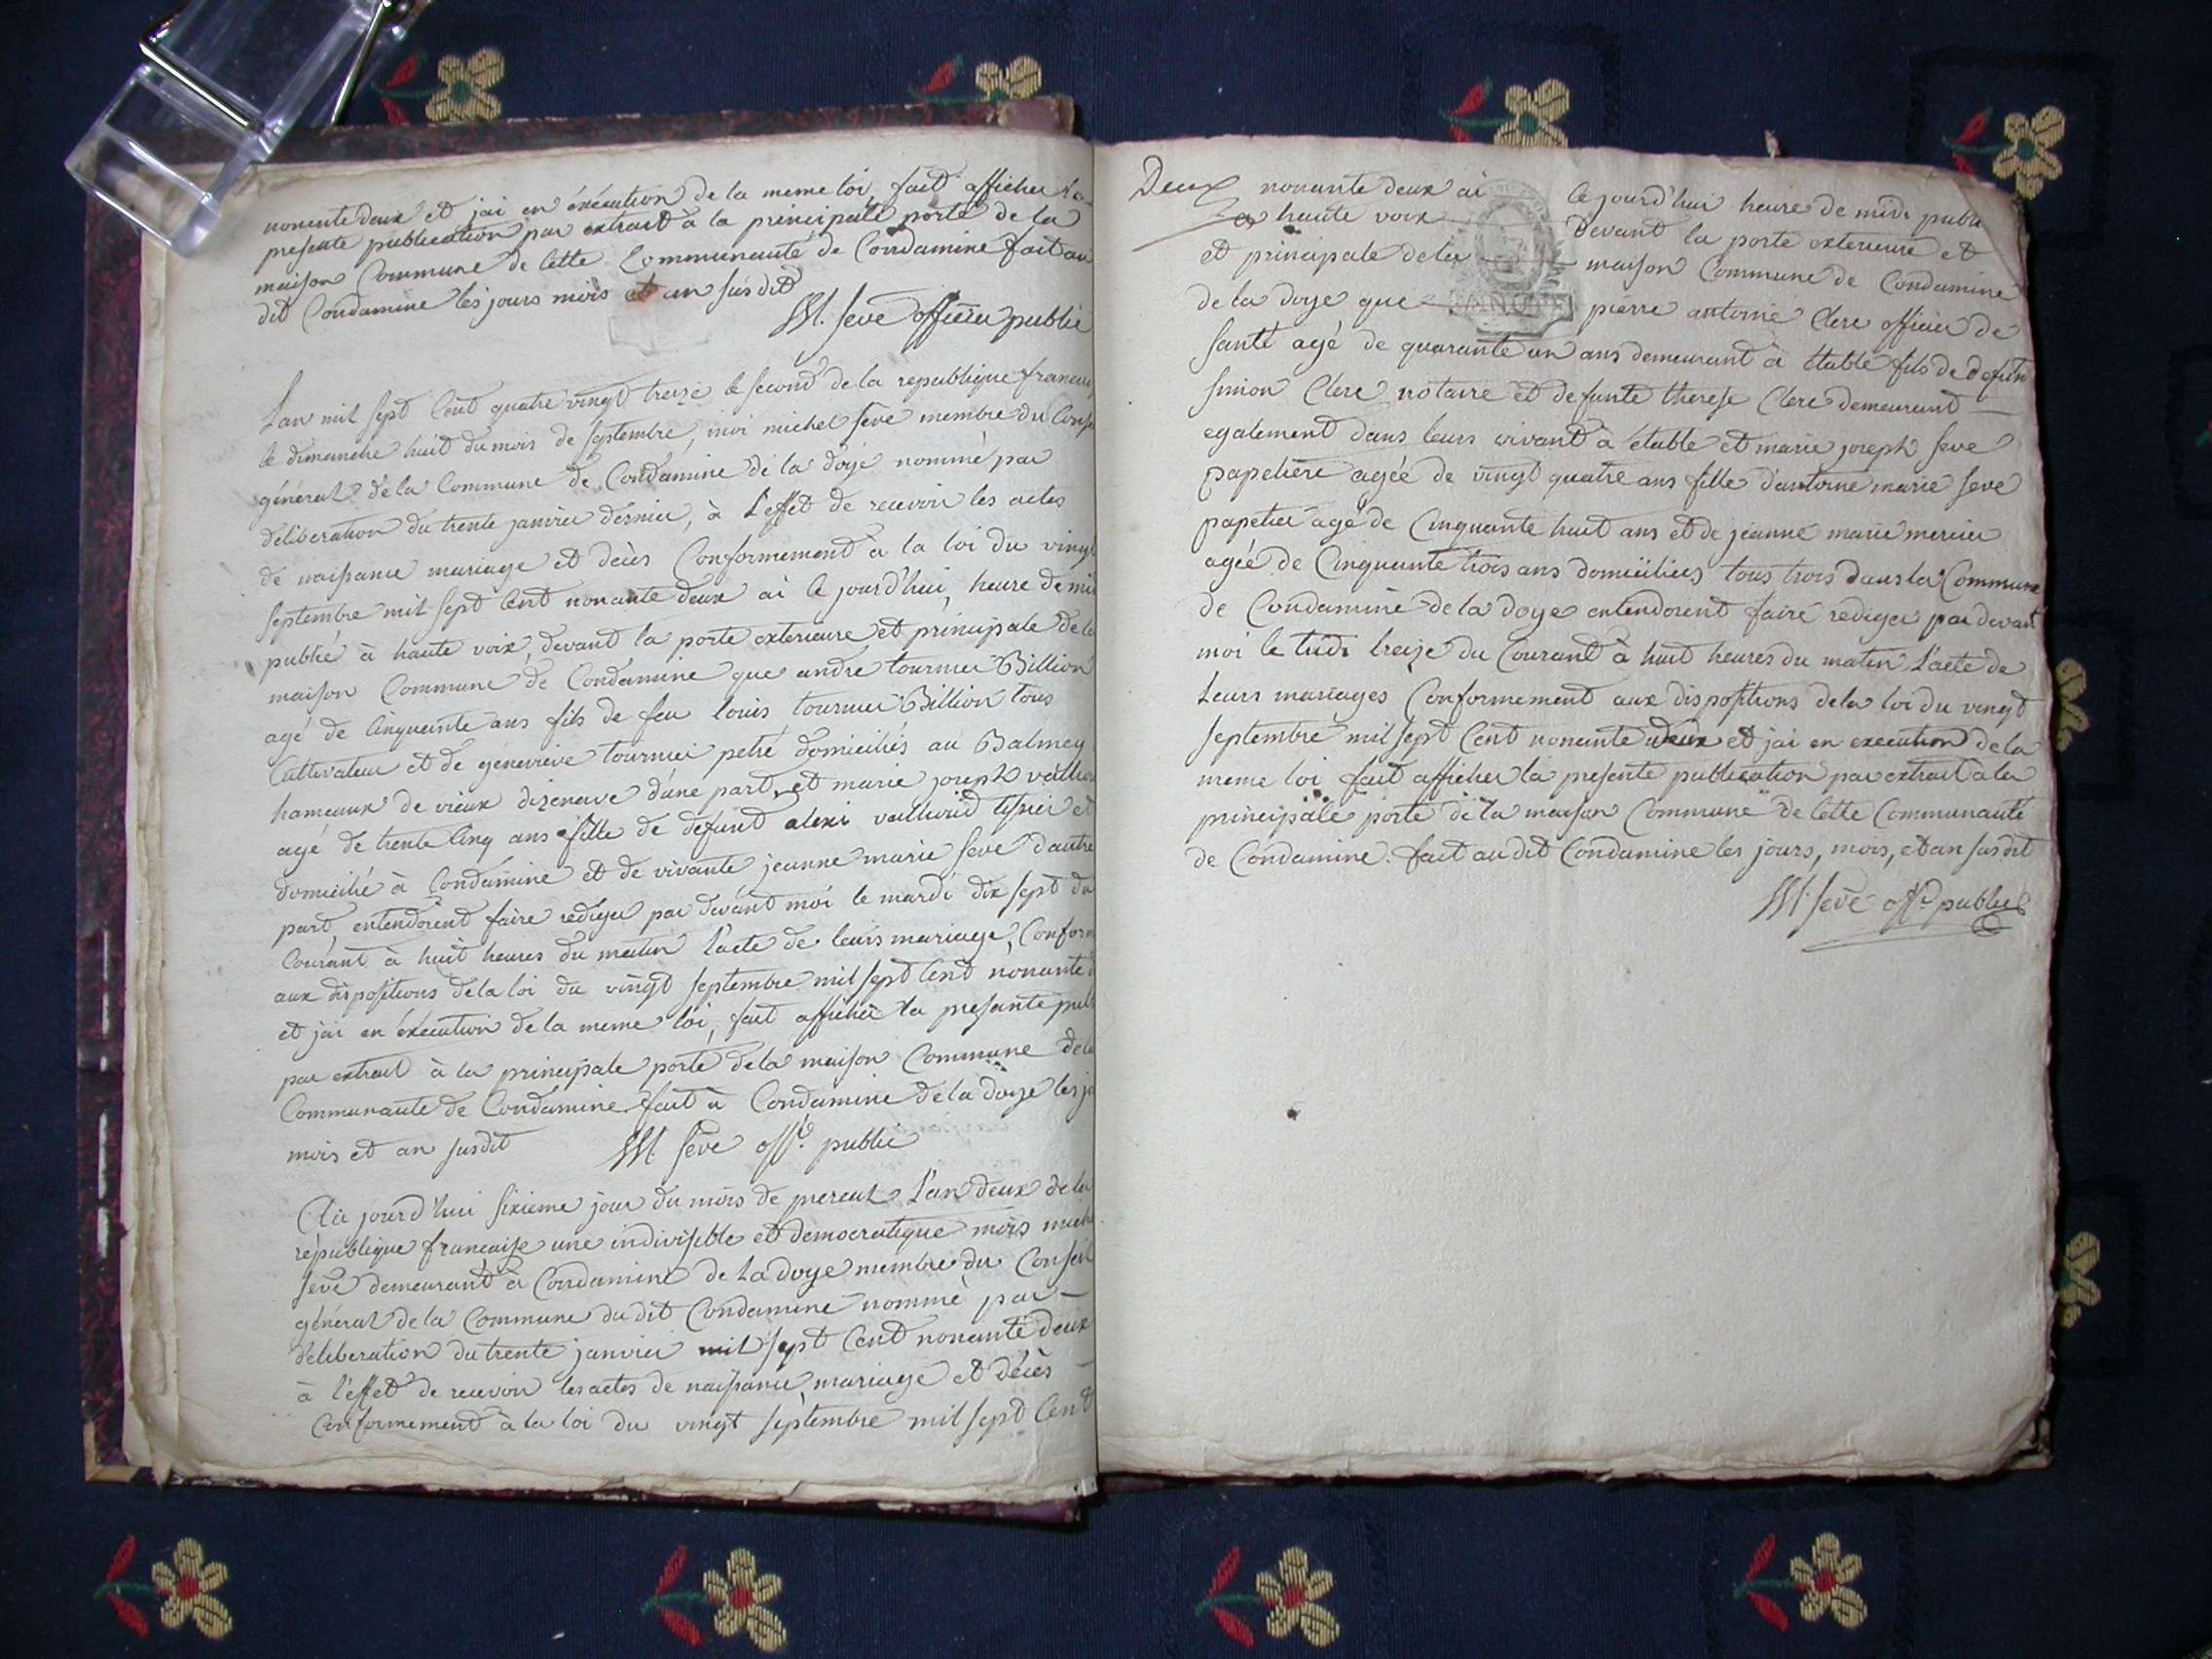 nonente deux et jai en éxécution de la meme loi, fait afficher la
presente publication par extrait a la principale porte de la
maison Commune de Cette Communauté de Condamine fait au
dit Condamine les jours mois et an susdit
M. seve officier public
Lan mil sept Cent quatre vingt treize le second de la republique francai
le dimanche huit du mois de septembre, moi michel seve membre du Conse
général de la Commune de Condamine de la doye nommé par
deliberation du trente janvier dernier, à L'effet de recevoir les actes
de naissance mariage et decès Conformement à la loi du vingt
septembre mil sept Cent nonante deux ai Ce jourd'hui, heure de mi
publié à haute voix, devant la porte exterieure et principale de la
maison Commune de Condamine que andre tournier Billion
agé de Cinquante ans fils de feu louis tournier Billion tous
Cultivateur et de genevieve tournier petré domiciliés au Balmey
hameaux de vieux dizenave d'une part, et marie joseph
agé de trente Cinq ans fille de defunt alexi tisnier et
domicilié à Condamine et de vivante jeanne marie seve d'autre
part entendoient faire rediger par devant moi le mardi dix sept du
Courant à huit heures du matin l'acte de leurs mariage, Conform
aux dispositions de la loi du vingt septembre mil sept Cent nonante d
et jai en éxécution de la meme loi, fait afficher la presante publ
par extrait à la principale porte de la maison Commune de la
Communaute de Condamine fait à Condamine de la doye les jo
mois et an susdit M seve offr. public
Au jourd'hui sixieme jour du mois de L'an deux de la
republique francaise une indivisible et democratique mois mich
seve demeurant à Condamine de La doye membre du Conseil
général de la Commune du dit Condamine nommè par
deliberation du trente janvier mil sept Cent nonante deux
à l'effet de recevoir les actes de naissance, mariage et décès
Conformement à la loi du vingt septembre mil sept Cent
Deux nonante deux ai Ce jourd'hui heure de midi publi
a haute voix devant la porte exterieure et
et principale de la maison Commune de Condamine
de la doye que pierre antoine Clerc officier de
santé agé de quarante un ans demeurant à étable fils de defunt
simon Clerc notaire et defunte therese Clerc demeurant
egalement dans leurs vivant à étable et marie joseph seve
papetiere agée de vingt quatre ans fille d'antoine marie seve
papetier agé de Cinquante huit ans et de jeanne marie mercier
agée de Cinquante trois ans domiciliées tous trois dans la Commune
de Condamine de la doye entendoient faire rediger par devant
moi le tridi treize du Courant à huit heures du matin L'acte de
Leurs mariages Conformement aux dispositions de la loi du vingt
septembre mil sept Cent nonante deux et jai en execution de la
meme loi fait afficher la presente publication par extrait a la
principale porte de la maison Commune de Cette Communauté
de Condamine. fait au dit Condamine les jours, mois, et an susdit
M. seve offr public